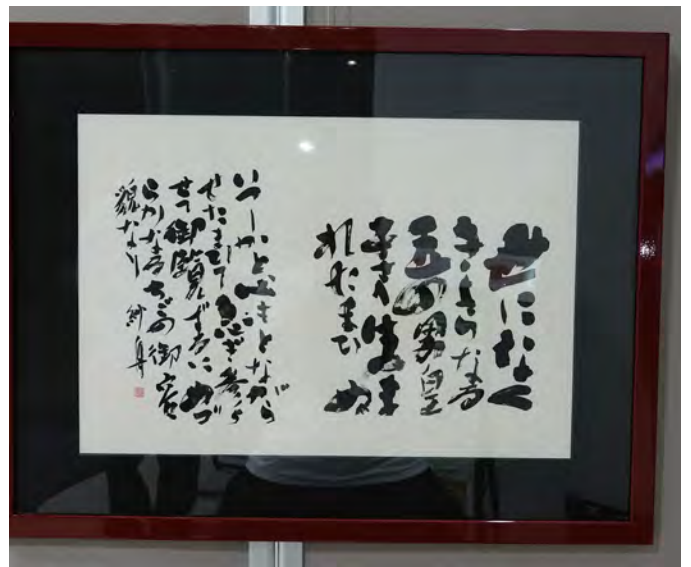 世になく
きよらなる
玉の男皇
子さへ生ま
れたまひぬ
いつしかと心もとながら
せたまひて急ぎ参ら
せて御覧ずるにめづ
らかなるちごの御容
貌なり